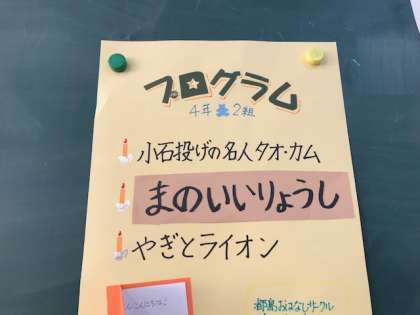 プログラム
4年 2組
小石投げの名人タオ・カム
まのいいりょうし
やぎとライオン
都島おはなしサークル